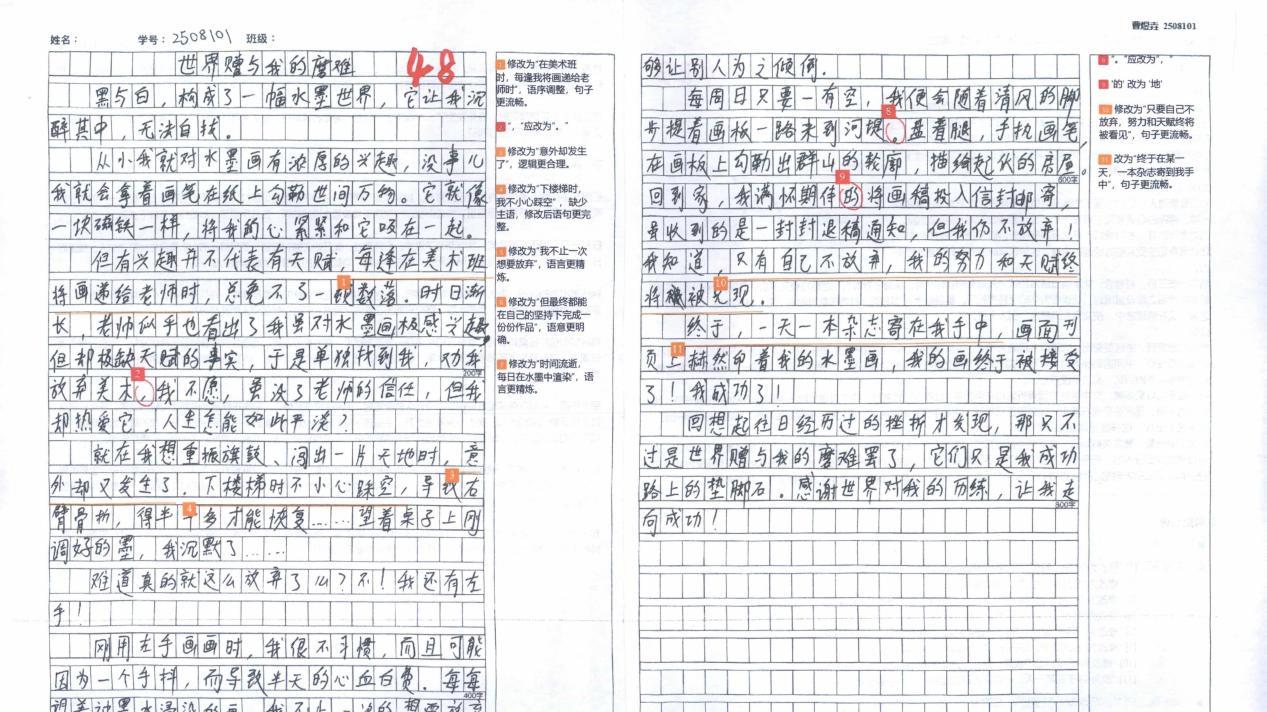 姓名：
学号：2508101
班级：
48
世界赠与我的磨难
黑与白，构成了一幅水墨世界，它让我沉
醉其中，无法自拔。
从小我就对水墨画有浓厚的兴趣，没事儿
我就会拿着画笔在纸上勾勒世间万物。它就像
一块磁铁一样，将我的心紧紧和它吸在一起。
但有兴趣并不代表有天赋，每逢在美术班
将画递给老师时，总免不了一顿数落。时日渐
长，老师似乎也看出了我虽对水墨画极感兴趣，
但却极缺天赋的事实，于是单独找到我 劝我
200字
放弃美术，我不愿，虽没了老师的信任，但我
却热爱它，人生怎能如此平淡？
就在我想重振旗鼓、闯出一片天地时，意
外却又发生了。下楼梯时不小心踩空，导致右
臂骨折，得半年多才能恢复……望着桌子上刚
调好的墨，我沉默了……
难道真的就这么放弃了么？不！我还有左
手！
刚用左手画画时，我很不习惯，而且可能
因为一个手抖，而导致半天的心血白费。每每
400字
1 修改为“在美术班
时，每逢我将画递给老
师时”，语序调整，句子
更流畅。
2 “，”应改为“。”
3 修改为“意外却发生
了”，逻辑更合理。
4 修改为“下楼梯时，
我不小心踩空”，缺少
主语，修改后语句更完
整。
5 修改为“我不止一次
想要放弃”，语言更精
炼。
6 修改为“但最终都能
在自己的坚持下完成一
份份作品”，语意更明
确。
7 修改为“时间流逝，
每日在水墨中渲染”，语
言更精炼。
曹煜垚 2508101
够让别人为之倾倒。
每周日只要一有空，我便会随着清风的脚
步提着画板一路来到河堤。盘着腿，手执画笔，
在画板上勾勒出群山的轮廓，描绘起伏的房屋。
600字
回到家，我满怀期待的将画稿投入信封邮寄，
寻收到的是一封封退稿通知，但我仍不放弃！
我知道，只有自己不放弃，我的努力和天赋终
将被发现。
终于，一天一本杂志寄在我手中，画面刊
页上赫然印着我的水墨画，我的画终于被接受
了！我成功了！
回想起往日经历过的挫折才发现，那只不
过是世界赠与我的磨难罢了，它们只是我成功
路上的垫脚石。感谢世界对我的历练，让我走
800字
向成功！
8 “。”应改为“，”
9 “的”改为“地”
10 修改为“只要自己不
放弃，努力和天赋终将
被看见”，句子更流畅。
11 改为“终于在某一
天，一本杂志寄到我手
中”，句子更流畅。